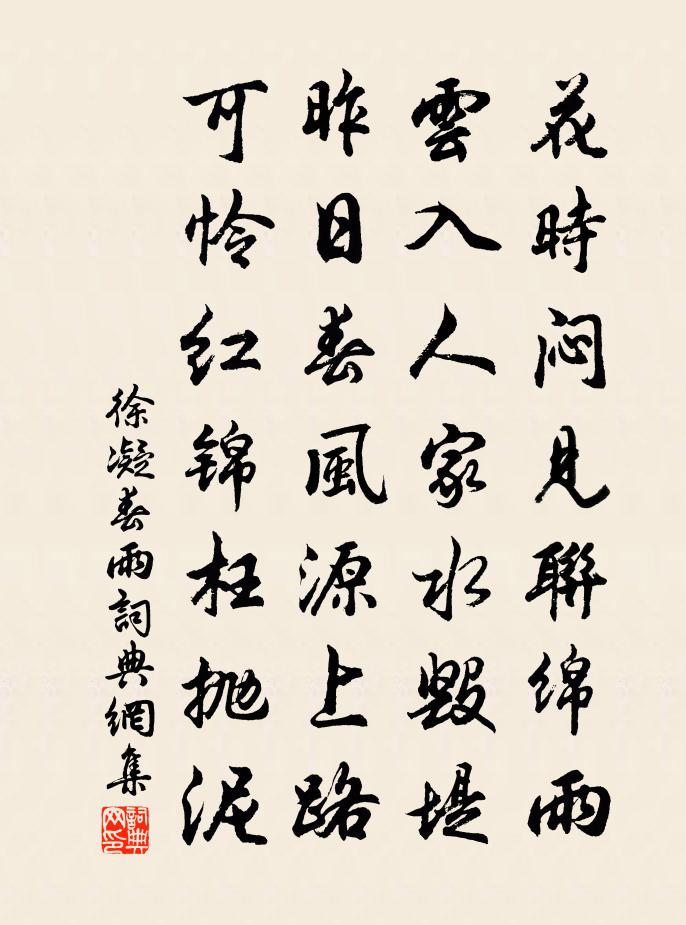 花時闷見聯绵雨
雲入人家水毁堤
昨日春風源上路
可怜红锦枉抛泥
徐凝春雨詞典網集
詞典网印